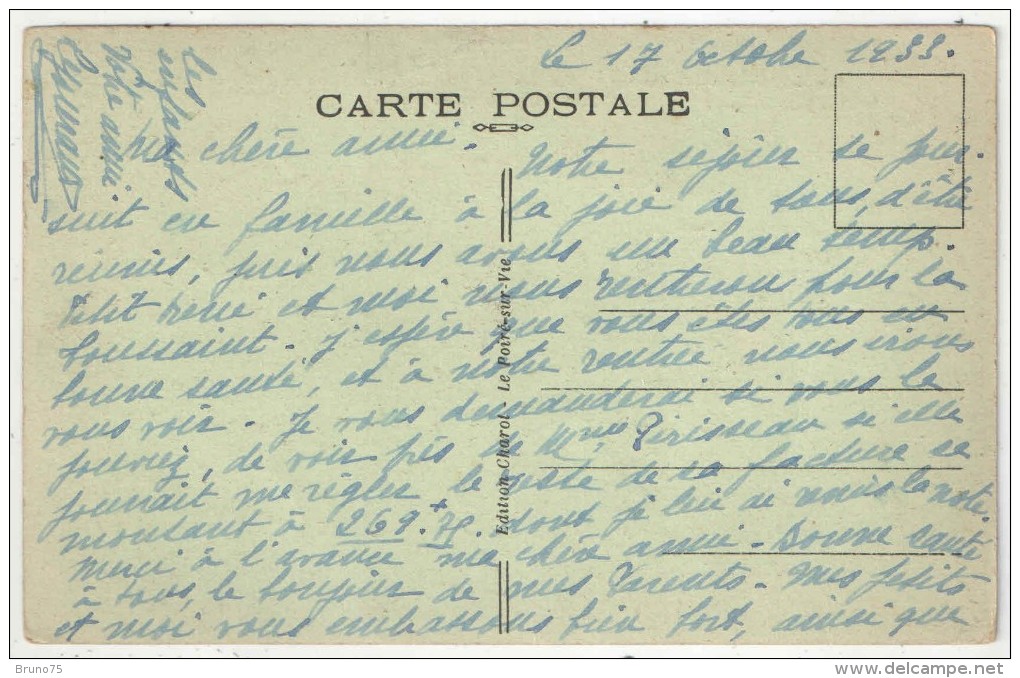 Le 17 Octobre 1933.
CARTE POSTALE
Ma chère amie.
Notre séjour se pour-
suit en famille à la joie de tous, d'être
réunis, puis nous avons un beau temp.
Petit René et moi nous rentrerons pour la
Toussaint. J'espère que vous êtes tous en
bonne santé, et à notre rentrée nous irons
vous voir. Je vous demanderai si vous le
pouviez, de voir près de Mme Périsseau si elle
pourrait me régler le reste de sa facture se
montant à 269.75 dont je lui ai remis la note.
Merci à l'avance ma chère amie. Bonne santé
à tous, le bonjour de mes Parents. Mes petits
et moi vous embrassons bien fort, ainsi que
les
enfants
Votre amie
Edition Charol - Le Poiré-sur-Vie
Bruno75
www.delcampe.net